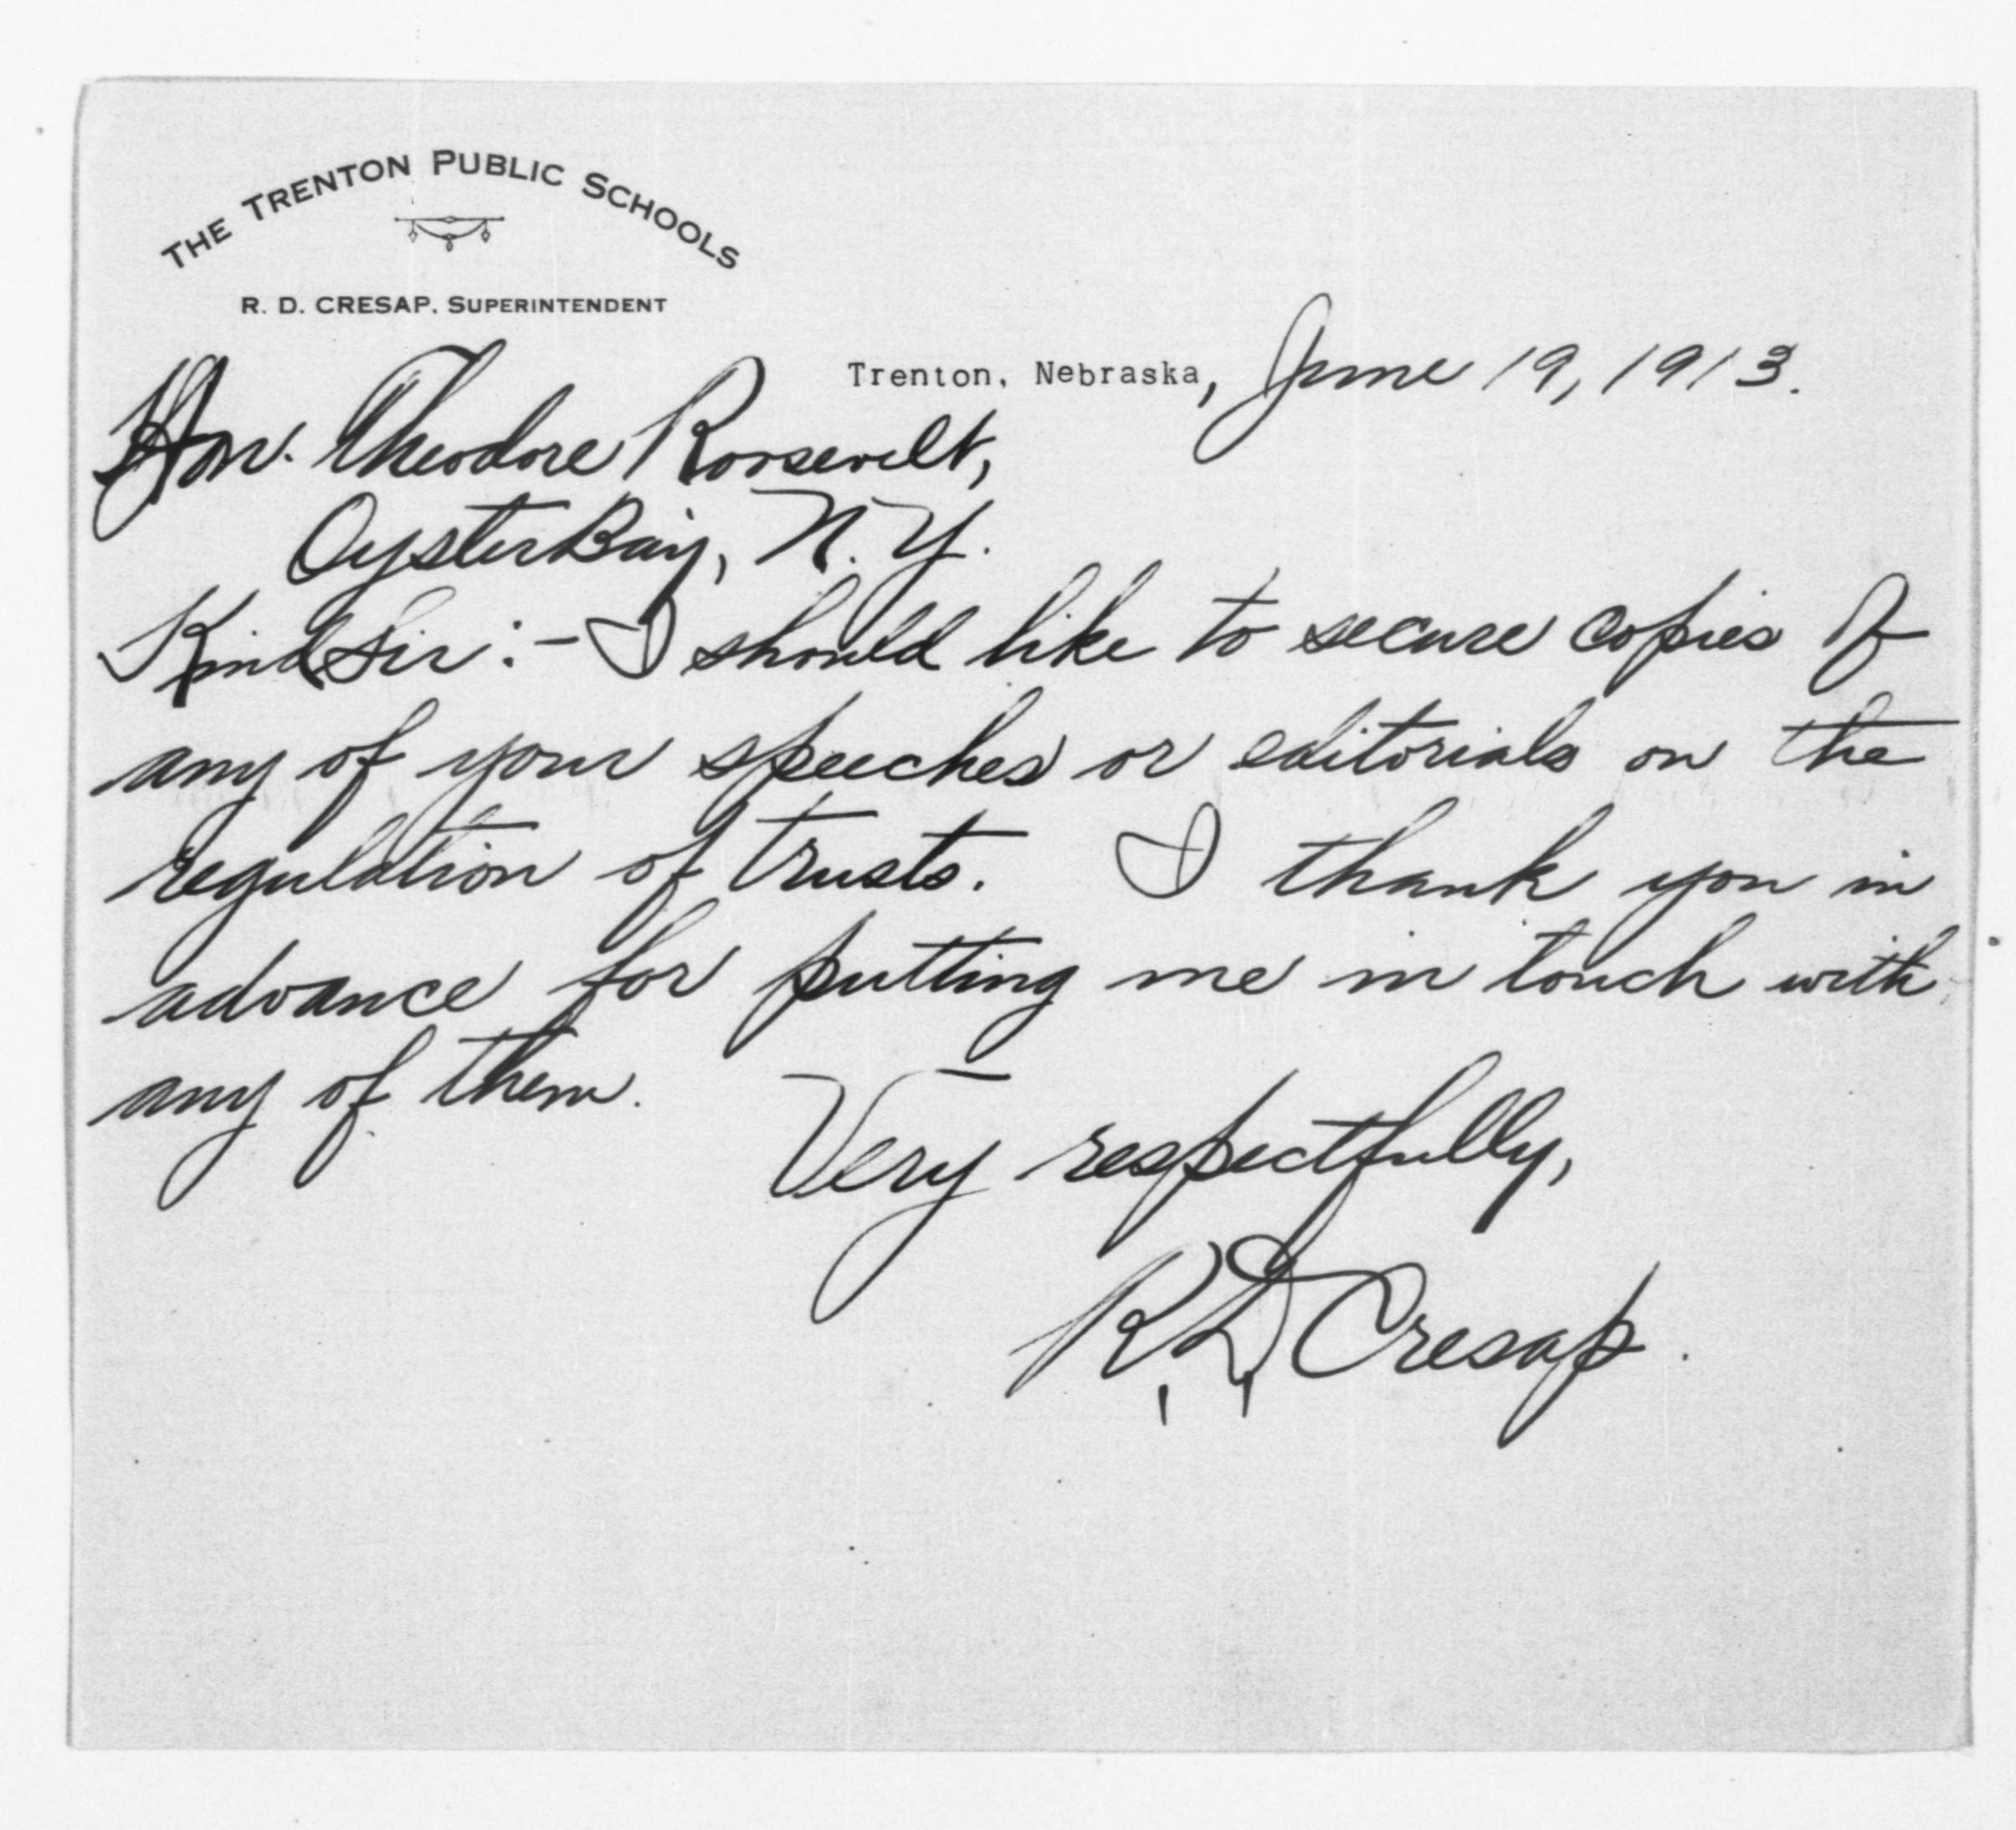 THE TRENTON PUBLIC SCHOOLS
R. D. CRESAP, SUPERINTENDENT
Trenton, Nebraska, June 19, 1913.
Hon. Theodore Roosevelt,
Oyster Bay, N. Y.
Kind Sir:- I should like to secure copies of
any of your speeches or editorials on the
regulation of trusts. I thank you in
advance for putting me in touch with
any of them.
Very respectfully,
R. D. Cresap.